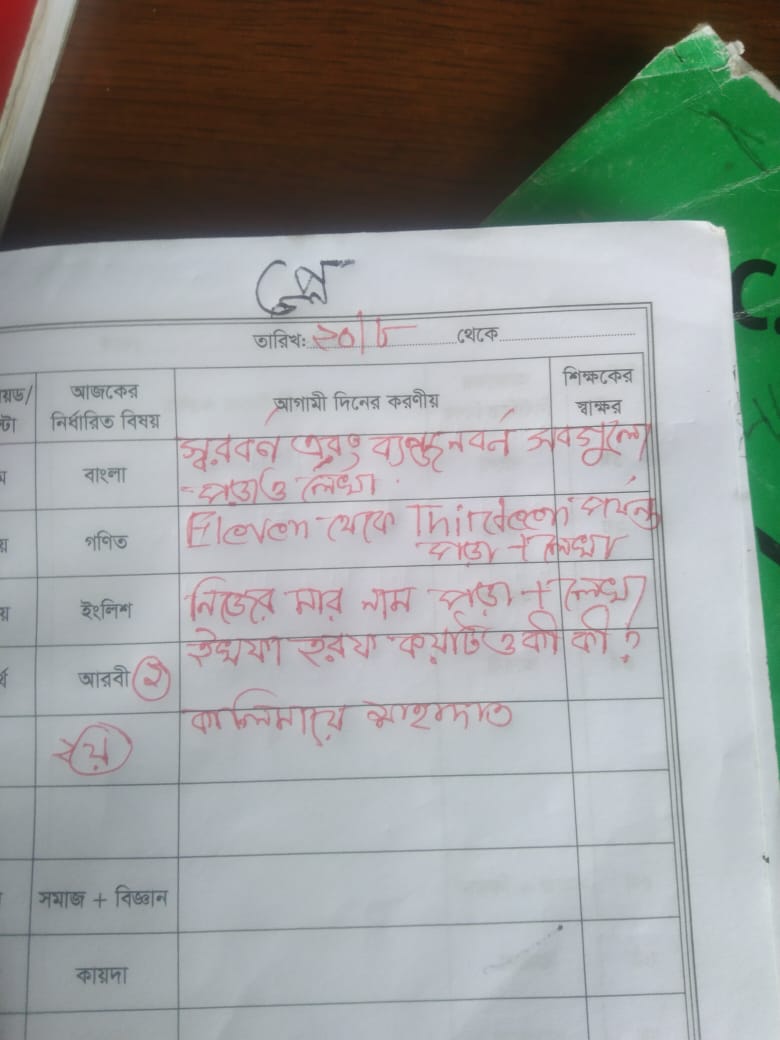 প্লে
তারিখ: ২০/৮ থেকে
আজকের নির্ধারিত বিষয়
আগামী দিনের করণীয়
শিক্ষকের স্বাক্ষর
বাংলা
স্বরবর্ন এবং ব্যঞ্জনবর্ন সবগুলো
পড়া ও লেখা
গণিত
Eleven থেকে Thirdeen পর্যন্ত
পড়া + লেখা
ইংলিশ
নিজের মার নাম পড়া + লেখা
আরবী ২
ইখফা হরফ কয়টি ও কী কী?
২য়
কালিমায়ে শাহাদাত
সমাজ + বিজ্ঞান
কায়দা